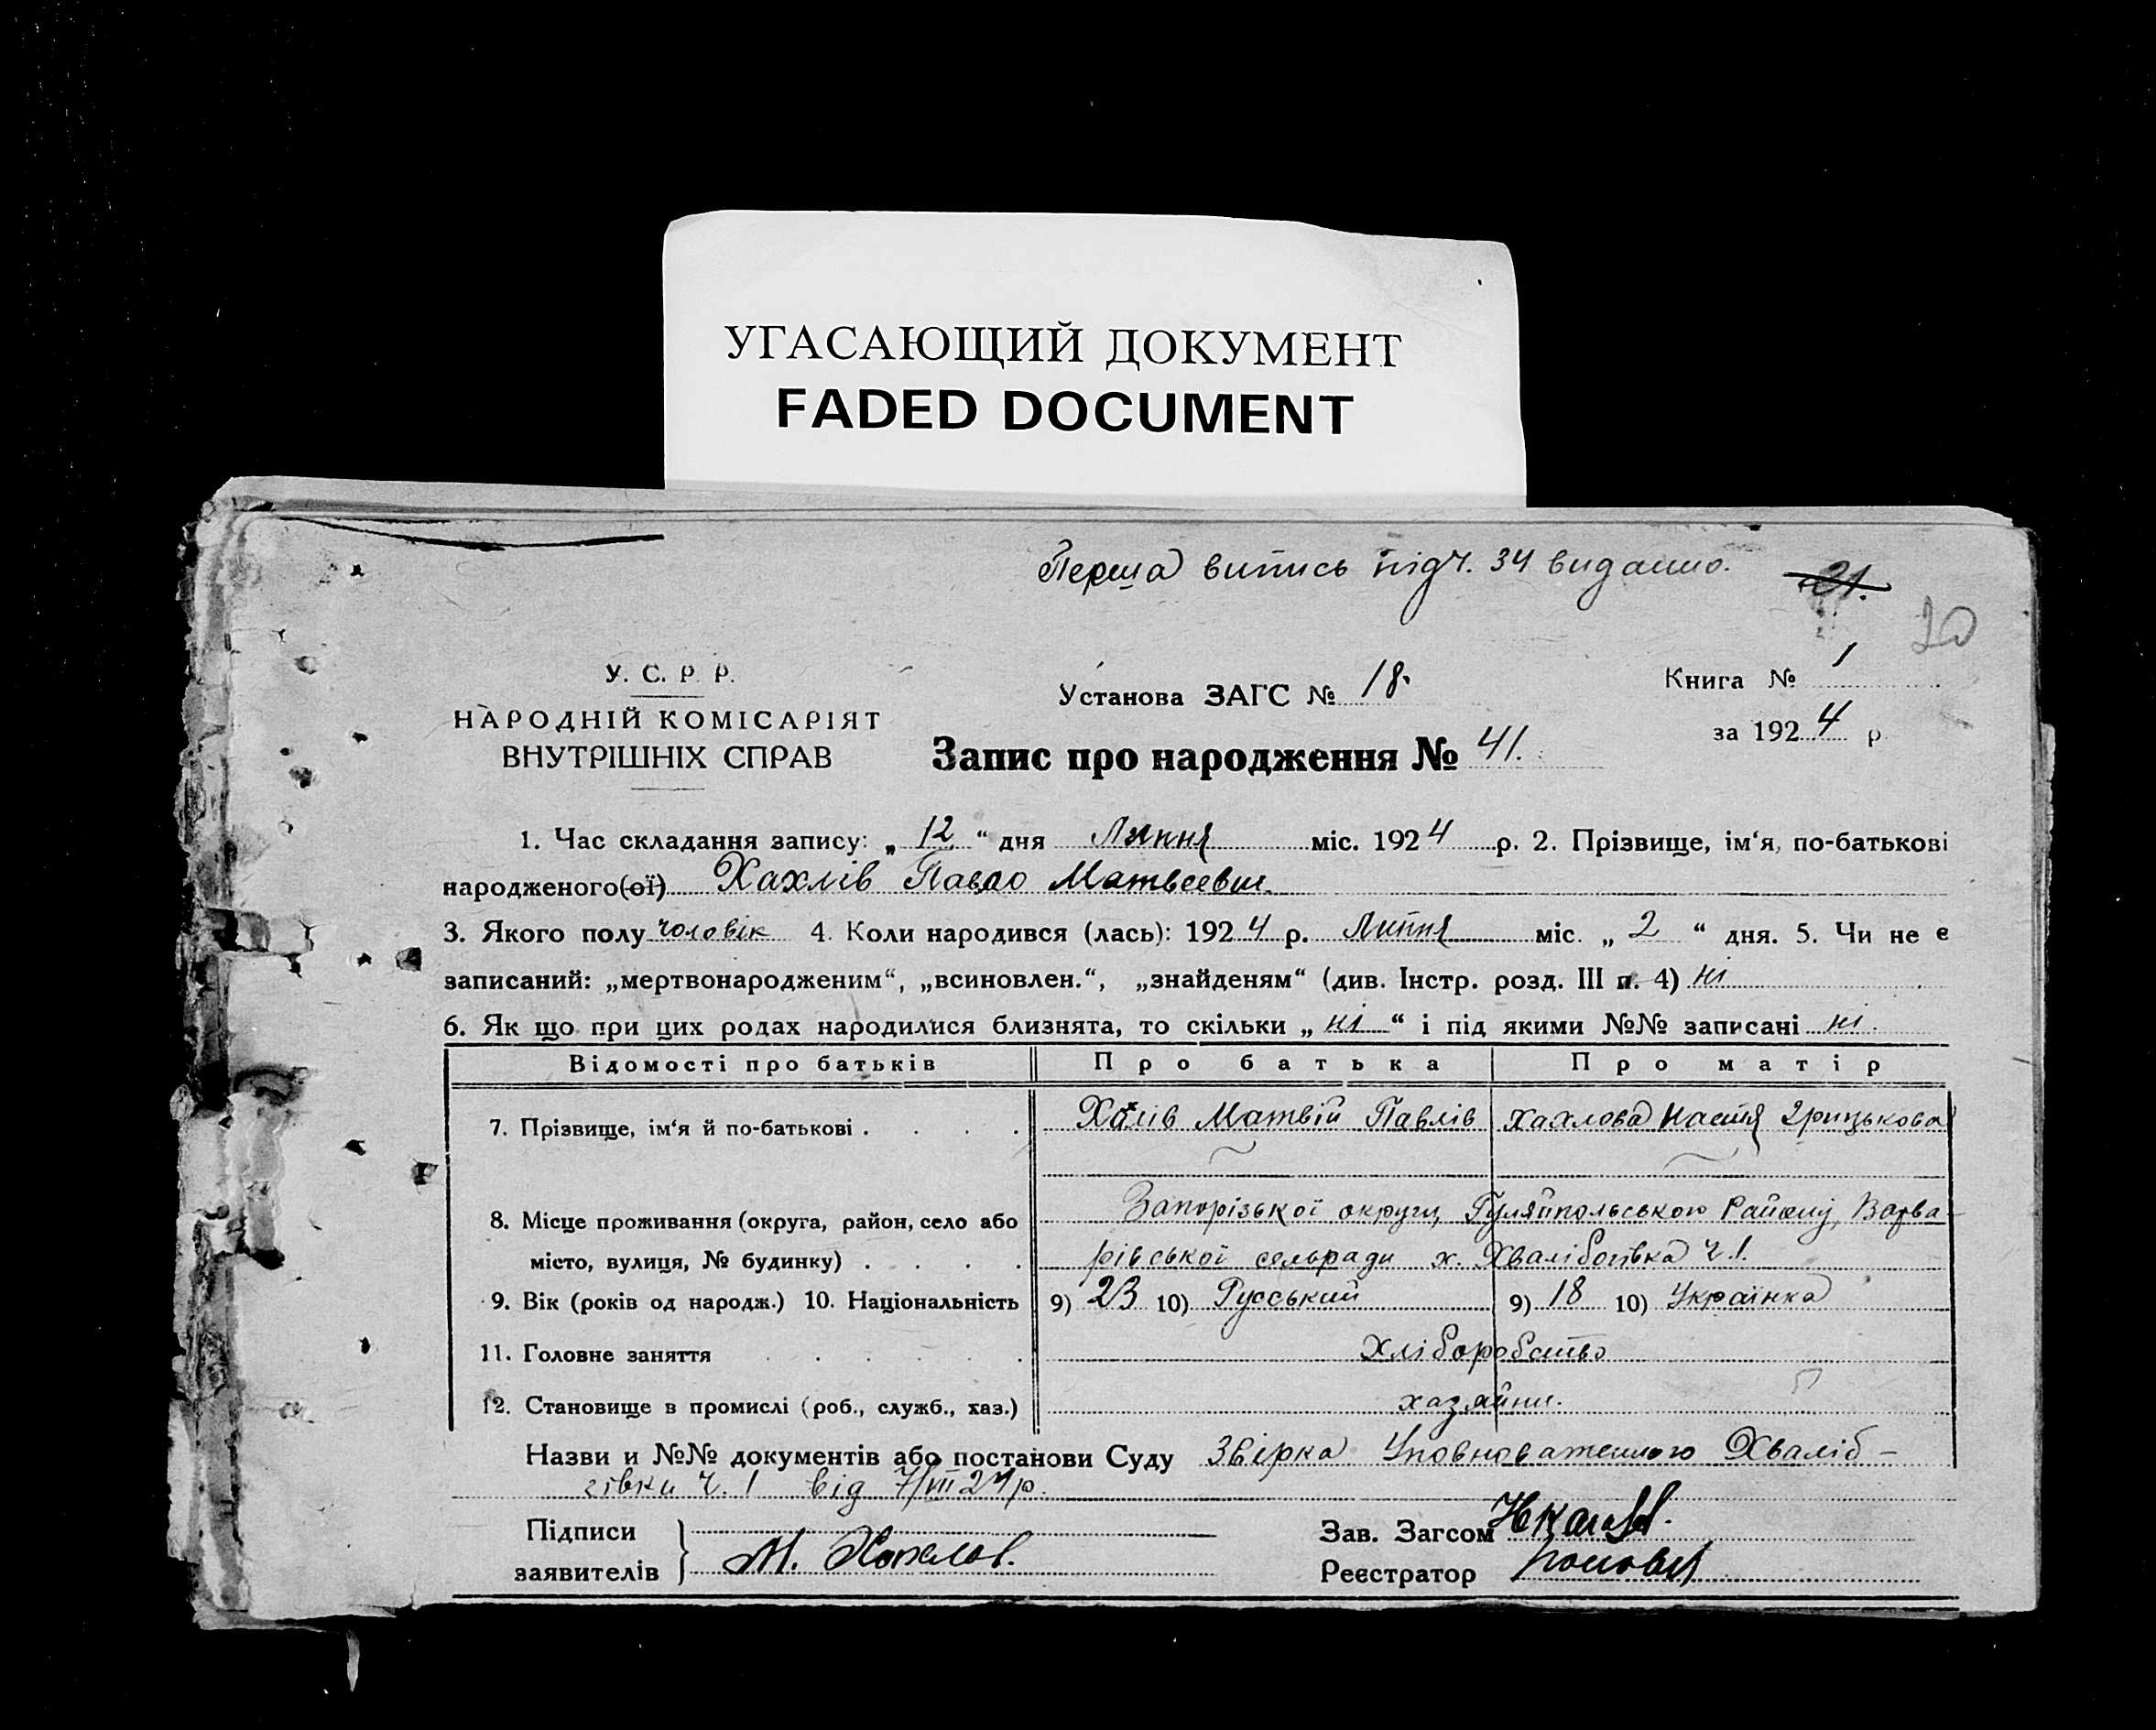 УГАСАЮЩИЙ ДОКУМЕНТ
FADED DOCUMENT
Перша випись під ч. 34 видано.
21.
20
У. С. Р. Р.
НАРОДНІЙ КОМІСАРІЯТ
ВНУТРІШНІХ СПРАВ
Установа ЗАГС № 18.
Книга № 1
за 1924 р
Запис про народження № 41.
1. Час складання запису: „ 12 “ дня Липня міс. 1924 р. 2. Прізвище, ім‘я, по-батькові
народженого(ої) Хахлів Павло Матвеевич
3. Якого полу чоловік 4. Коли народився (лась): 1924 р. Липня міс. „ 2 “ дня. 5. Чи не є
записаний: „мертвонародженим“, „всиновлен.“, „знайденям“ (див. Інстр. розд. III п. 4) ні
6. Як що при цих родах народилися близнята, то скільки „ ні “ і під якими №№ записані ні.
Відомості про батьків Про батька Про матір
7. Прізвище, ім‘я й по-батькові . . . . . Хахлів Матвій Павлів Хахлова Настя Грицькова
8. Місце проживання (округа, район, село або Запорізької округи, Гуляйпольського Району, Варва-
місто, вулиця, № будинку) . . . . рівської сельради х. Ч. 1.
9. Вік (років од народж.) 10. Національність 9) 23 10) Русський 9) 18 10) Українка
11. Головне заняття . . . . . . Хліборобство
12. Становище в промислі (роб., служб., хаз.) хазяйни.
Назви и №№ документів або постанови Суду Звірка Уповноваженого Хваліб-
гівки ч. 1 від 7/VII 24 р.
Підписи
заявителів М. Хахлов.
Зав. Загсом
Реєстратор